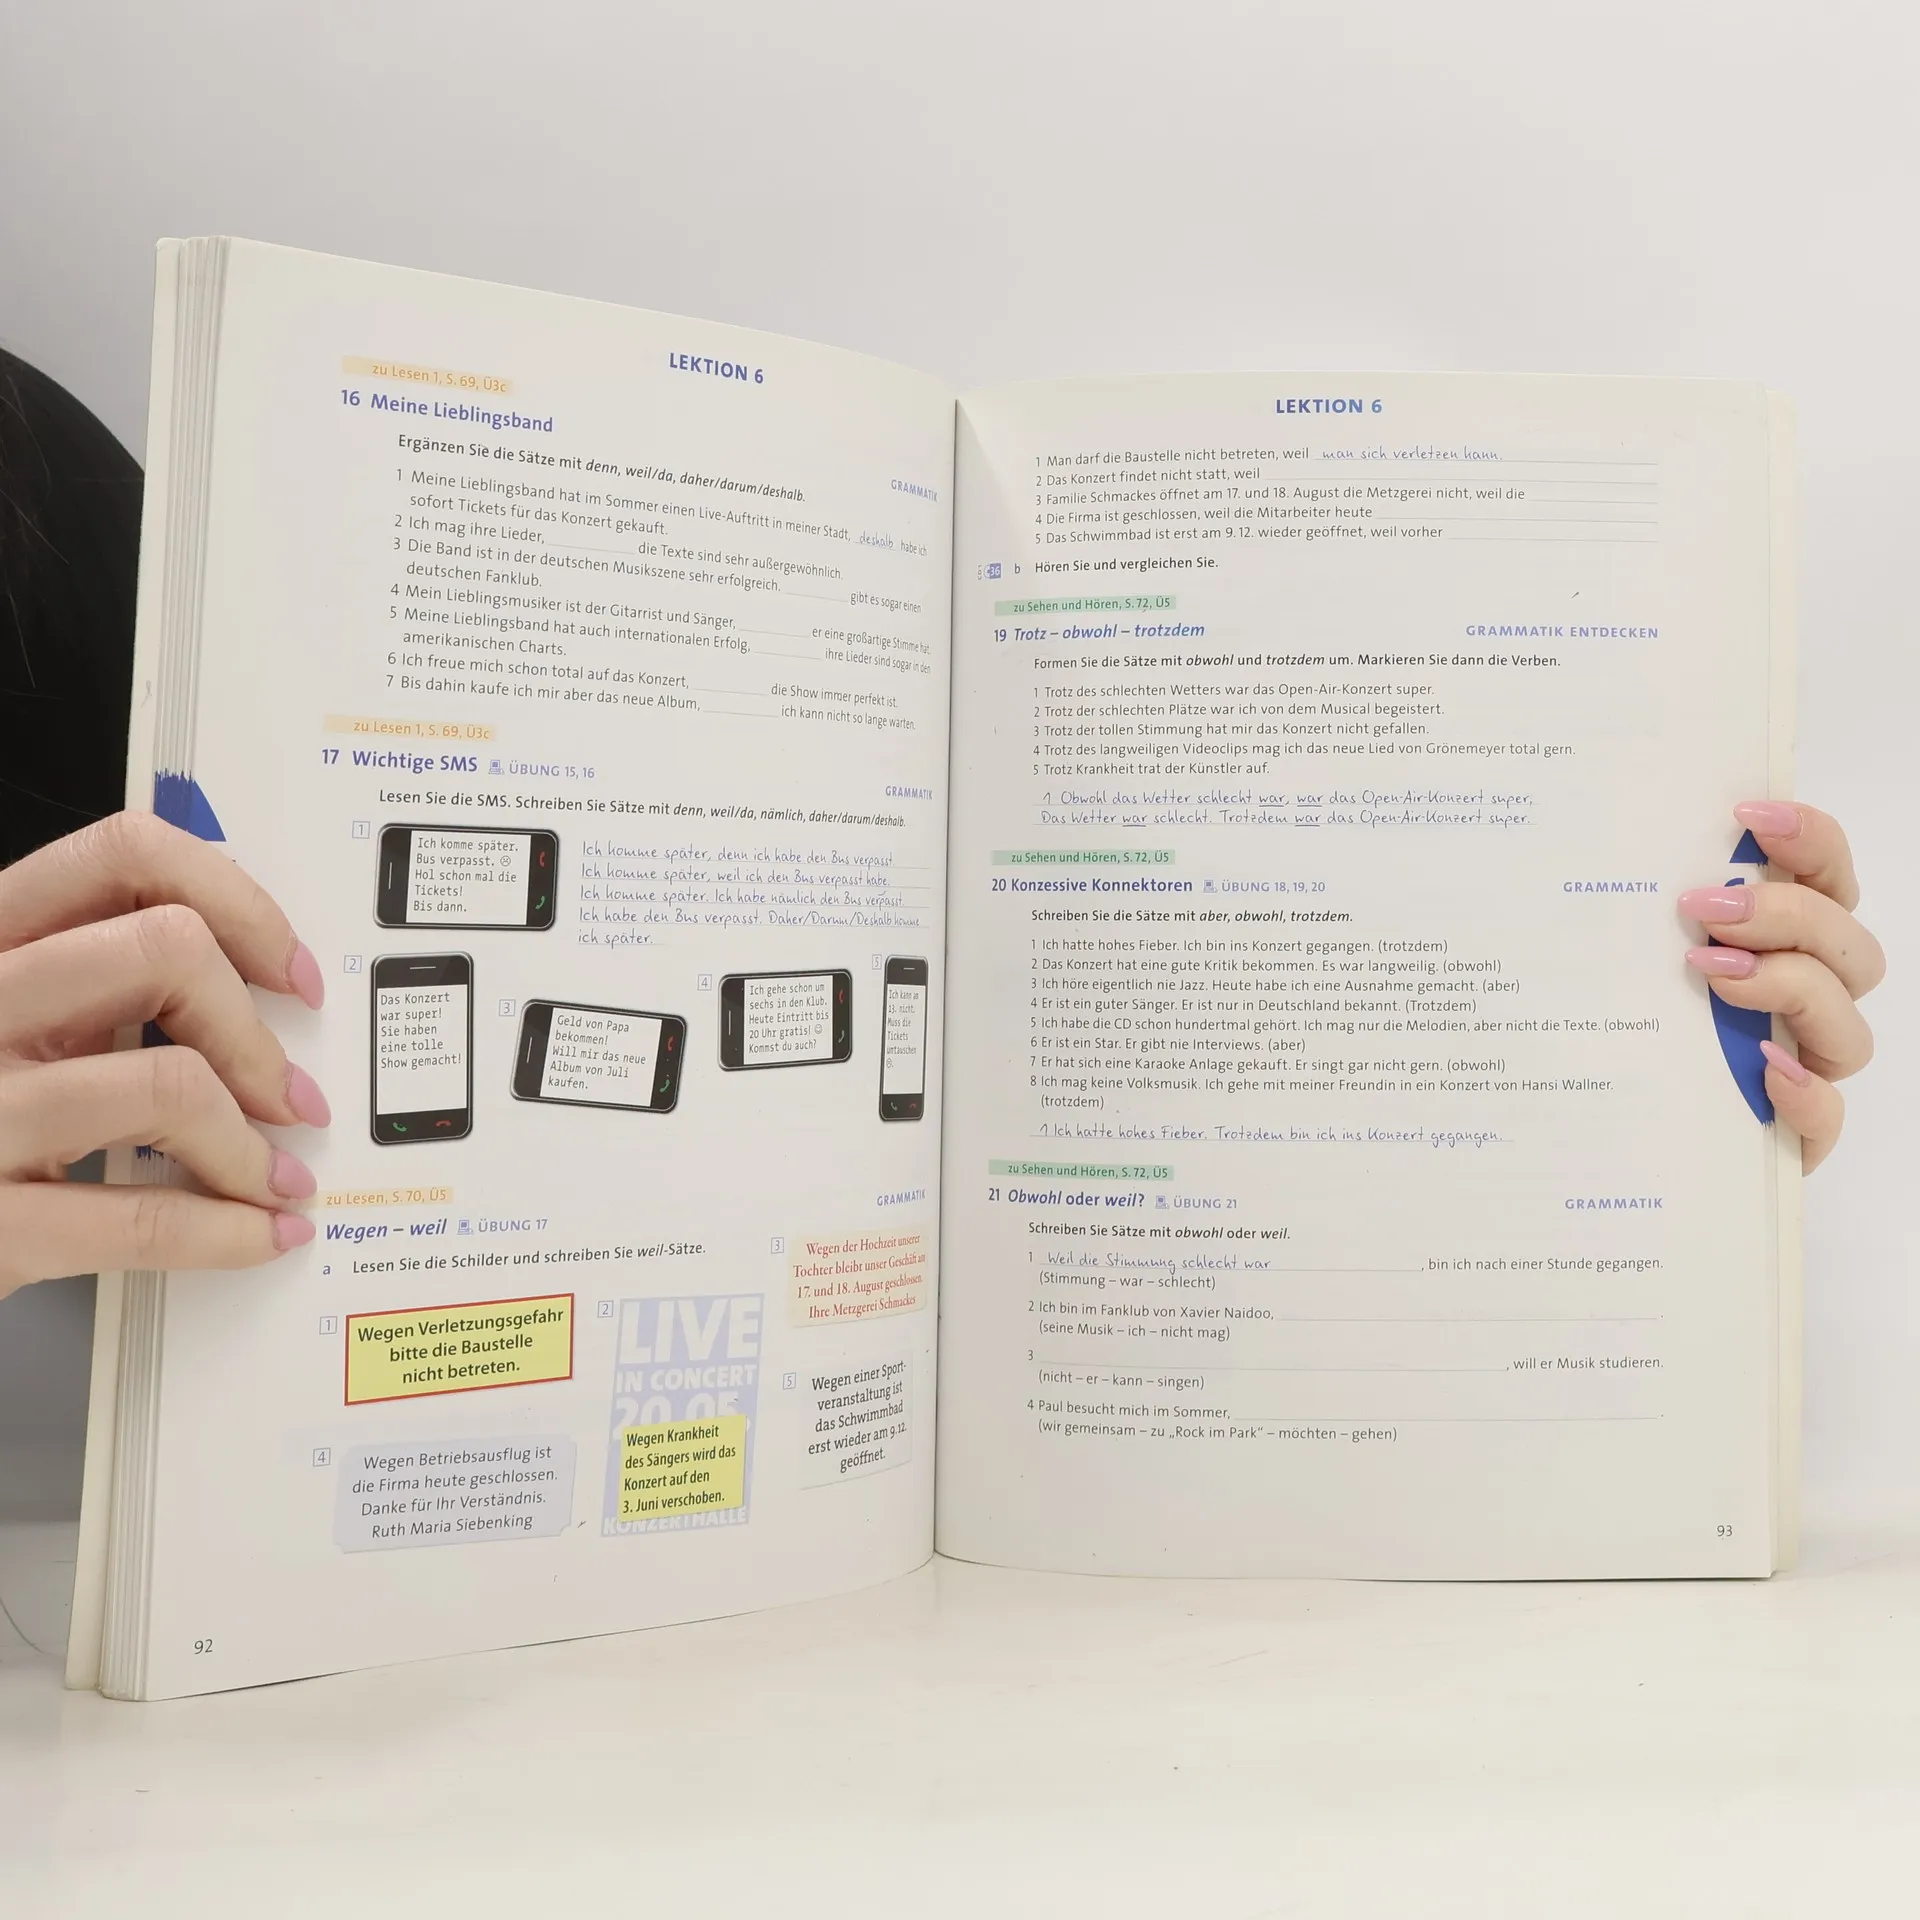 LEKTION 6
zu Lesen 1, S. 69, Ü3c
16 Meine Lieblingsband
Ergänzen Sie die Sätze mit denn, weil/da, daher/darum/deshalb.
GRAMMATIK
1 Meine Lieblingsband hat im Sommer einen Live-Auftritt in meiner Stadt, deshalb habe ich
sofort Tickets für das Konzert gekauft.
2 Ich mag ihre Lieder, die Texte sind sehr außergewöhnlich.
3 Die Band ist in der deutschen Musikszene sehr erfolgreich. gibt es sogar einen
deutschen Fanklub.
4 Mein Lieblingsmusiker ist der Gitarrist und Sänger, er eine großartige Stimme hat.
5 Meine Lieblingsband hat auch internationalen Erfolg, ihre Lieder sind sogar in den
amerikanischen Charts.
6 Ich freue mich schon total auf das Konzert, die Show immer perfekt ist.
7 Bis dahin kaufe ich mir aber das neue Album, ich kann nicht so lange warten.
zu Lesen 1, S. 69, Ü3c
17 Wichtige SMS ÜBUNG 15, 16
GRAMMATIK
Lesen Sie die SMS. Schreiben Sie Sätze mit denn, weil/da, nämlich, daher/darum/deshalb.
1
Ich komme später.
Bus verpasst. ☹
Hol schon mal die
Tickets!
Bis dann.
Ich komme später, denn ich habe den Bus verpasst.
Ich komme später, weil ich den Bus verpasst habe.
Ich komme später. Ich habe nämlich den Bus verpasst.
Ich habe den Bus verpasst. Daher/Darum/Deshalb komme
ich später.
2
Das Konzert
war super!
Sie haben
eine tolle
Show gemacht!
3
Geld von Papa
bekommen!
Will mir das neue
Album von Juli
kaufen.
4
Ich gehe schon um
sechs in den Klub.
Heute Eintritt bis
20 Uhr gratis! ☺
Kommst du auch?
5
Ich kann am
13. nicht.
Muss die
Tickets
umtauschen
☹.
zu Lesen, S. 70, Ü5
GRAMMATIK
Wegen – weil ÜBUNG 17
a Lesen Sie die Schilder und schreiben Sie weil-Sätze.
1
Wegen Verletzungsgefahr
bitte die Baustelle
nicht betreten.
2
LIVE
IN CONCERT
20.05.
Wegen Krankheit
des Sängers wird das
Konzert auf den
3. Juni verschoben.
KONZERTHALLE
3
Wegen der Hochzeit unserer
Tochter bleibt unser Geschäft am
17. und 18. August geschlossen.
Ihre Metzgerei Schmackes
4
Wegen Betriebsausflug ist
die Firma heute geschlossen.
Danke für Ihr Verständnis.
Ruth Maria Siebenking
5
Wegen einer Sport-
veranstaltung ist
das Schwimmbad
erst wieder am 9.12.
geöffnet.
92
LEKTION 6
1 Man darf die Baustelle nicht betreten, weil man sich verletzen kann.
2 Das Konzert findet nicht statt, weil
3 Familie Schmackes öffnet am 17. und 18. August die Metzgerei nicht, weil die
4 Die Firma ist geschlossen, weil die Mitarbeiter heute
5 Das Schwimmbad ist erst am 9.12. wieder geöffnet, weil vorher
36 b Hören Sie und vergleichen Sie.
zu Sehen und Hören, S. 72, Ü5
19 Trotz – obwohl – trotzdem GRAMMATIK ENTDECKEN
Formen Sie die Sätze mit obwohl und trotzdem um. Markieren Sie dann die Verben.
1 Trotz des schlechten Wetters war das Open-Air-Konzert super.
2 Trotz der schlechten Plätze war ich von dem Musical begeistert.
3 Trotz der tollen Stimmung hat mir das Konzert nicht gefallen.
4 Trotz des langweiligen Videoclips mag ich das neue Lied von Grönemeyer total gern.
5 Trotz Krankheit trat der Künstler auf.
1 Obwohl das Wetter schlecht war, war das Open-Air-Konzert super.
Das Wetter war schlecht. Trotzdem war das Open-Air-Konzert super.
zu Sehen und Hören, S. 72, Ü5
20 Konzessive Konnektoren ÜBUNG 18, 19, 20 GRAMMATIK
Schreiben Sie die Sätze mit aber, obwohl, trotzdem.
1 Ich hatte hohes Fieber. Ich bin ins Konzert gegangen. (trotzdem)
2 Das Konzert hat eine gute Kritik bekommen. Es war langweilig. (obwohl)
3 Ich höre eigentlich nie Jazz. Heute habe ich eine Ausnahme gemacht. (aber)
4 Er ist ein guter Sänger. Er ist nur in Deutschland bekannt. (Trotzdem)
5 Ich habe die CD schon hundertmal gehört. Ich mag nur die Melodien, aber nicht die Texte. (obwohl)
6 Er ist ein Star. Er gibt nie Interviews. (aber)
7 Er hat sich eine Karaoke Anlage gekauft. Er singt gar nicht gern. (obwohl)
8 Ich mag keine Volksmusik. Ich gehe mit meiner Freundin in ein Konzert von Hansi Wallner.
(trotzdem)
1 Ich hatte hohes Fieber. Trotzdem bin ich ins Konzert gegangen.
zu Sehen und Hören, S. 72, Ü5
21 Obwohl oder weil? ÜBUNG 21 GRAMMATIK
Schreiben Sie Sätze mit obwohl oder weil.
1 Weil die Stimmung schlecht war, bin ich nach einer Stunde gegangen.
(Stimmung – war – schlecht)
2 Ich bin im Fanklub von Xavier Naidoo, .
(seine Musik – ich – nicht mag)
3 , will er Musik studieren.
(nicht – er – kann – singen)
4 Paul besucht mich im Sommer, .
(wir gemeinsam – zu „Rock im Park“ – möchten – gehen)
93